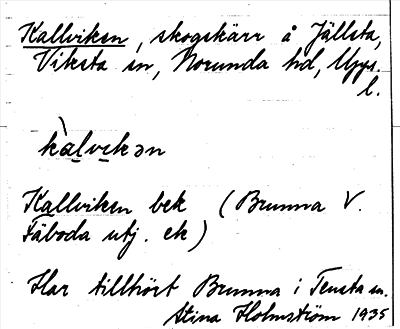 Kallviken, skogskärr å Jällsta,
Viksta sn, Norunda hd, Upps.
l.
kàlvikən
Kallviken bek (Brunna V.
Fäboda utj. ek)
Har tillhört Brunna i Tensta sn.
Stina Holmström 1935